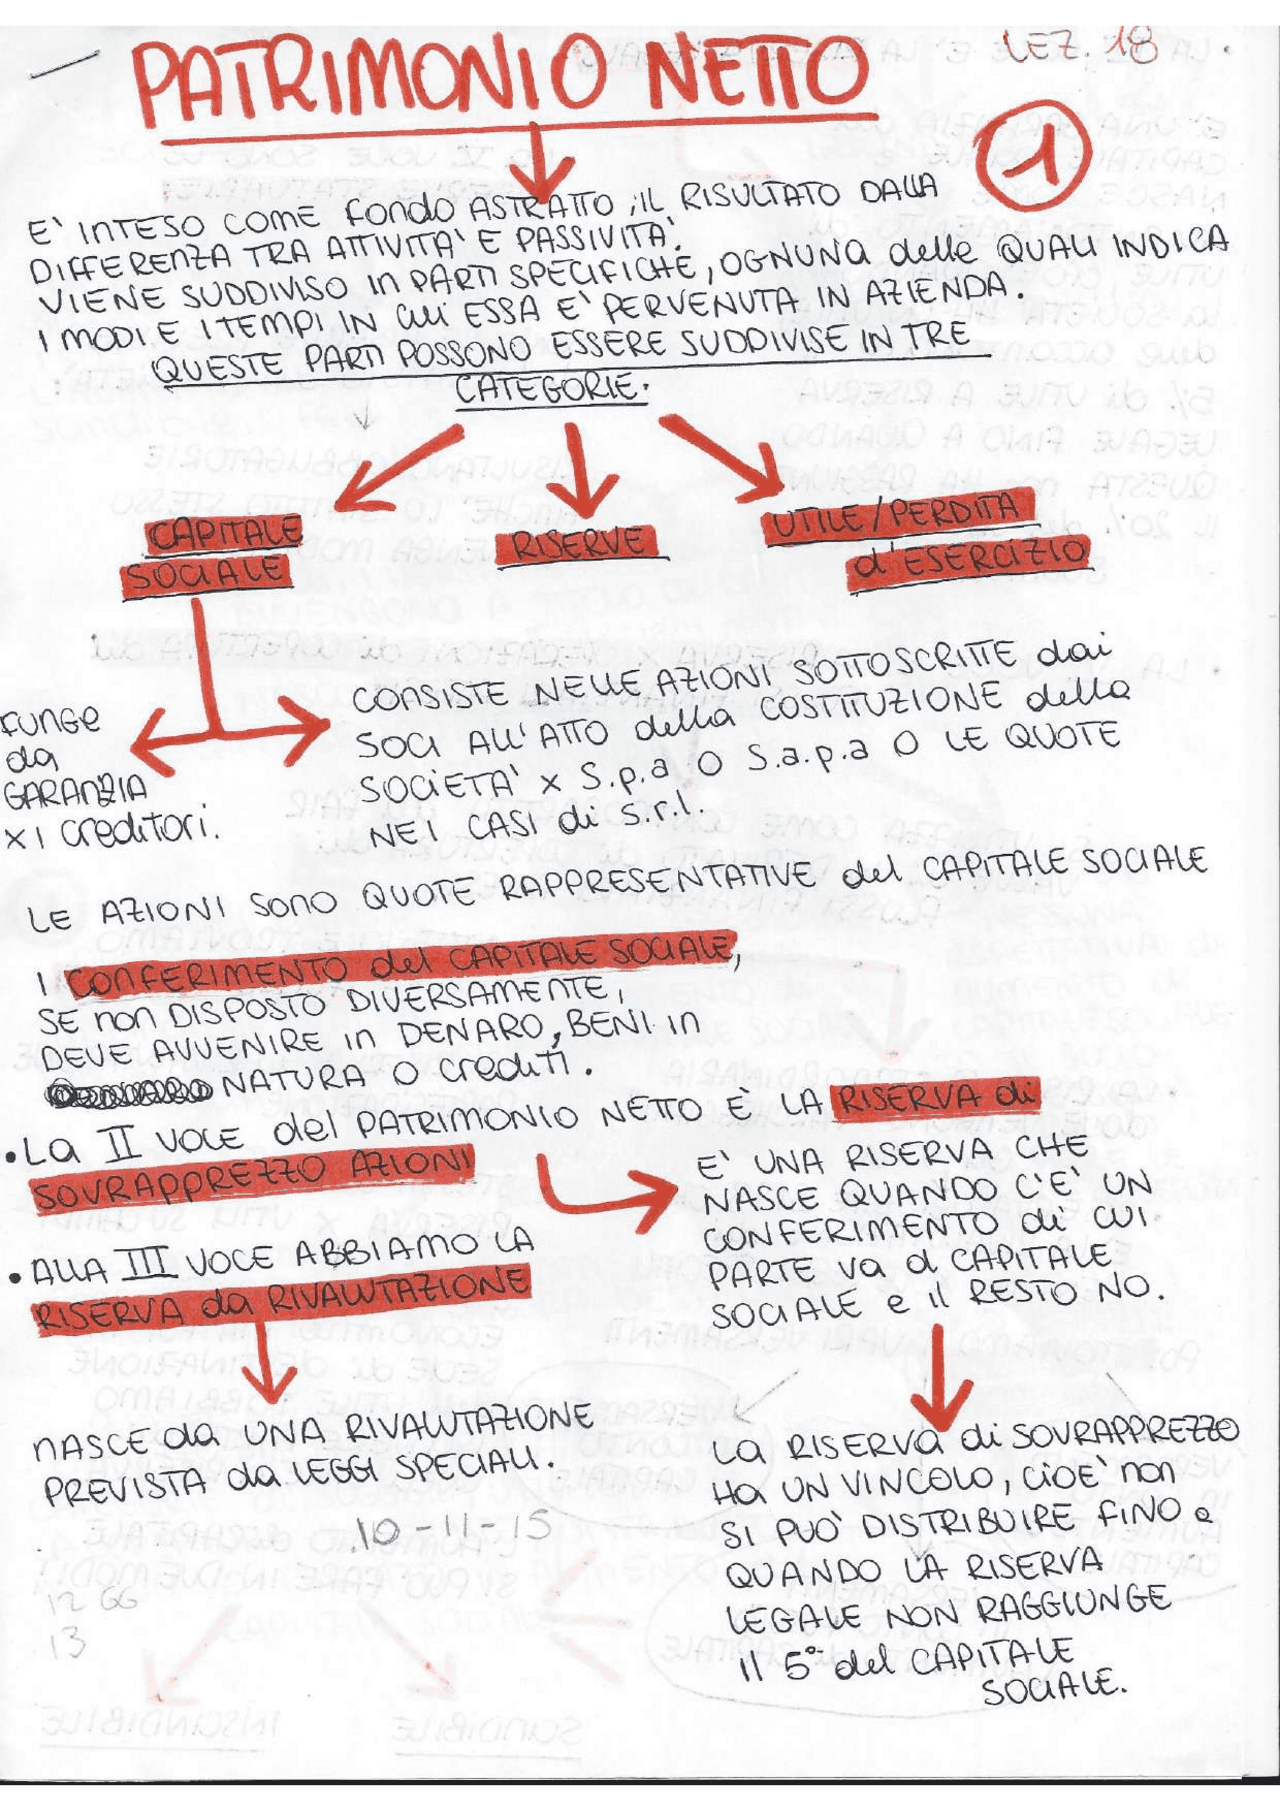 LEZ. 18
PATRIMONIO NETTO
1
E' INTESO COME FONDO ASTRATTO, IL RISULTATO DALLA
DIFFERENZA TRA ATTIVITA' E PASSIVITA'.
VIENE SUDDIVISO IN PARTI SPECIFICHE, OGNUNA delle QUALI INDICA
I MODI E I TEMPI IN cui ESSA E' PERVENUTA IN AZIENDA.
QUESTE PARTI POSSONO ESSERE SUDDIVISE IN TRE
CATEGORIE.
CAPITALE
SOCIALE
RISERVE
UTILE/PERDITA
d'ESERCIZIO
FUNGE
da
GARANZIA
x I creditori.
CONSISTE NELLE AZIONI SOTTOSCRITTE dai
SOCI ALL'ATTO della COSTITUZIONE della
SOCIETA' x S.p.a O S.a.p.a O LE QUOTE
NEI CASI di S.r.l.
LE AZIONI SONO QUOTE RAPPRESENTATIVE del CAPITALE SOCIALE
I CONFERIMENTO del CAPITALE SOCIALE,
SE non DISPOSTO DIVERSAMENTE,
DEVE AVVENIRE in DENARO, BENI in
NATURA O crediti.
• LA II VOCE del PATRIMONIO NETTO È LA RISERVA di
SOVRAPPREZZO AZIONI
E' UNA RISERVA CHE
NASCE QUANDO C'E' UN
CONFERIMENTO di CUI
PARTE va a CAPITALE
SOCIALE e il RESTO NO.
• ALLA III VOCE ABBIAMO LA
RISERVA da RIVALUTAZIONE
NASCE da UNA RIVALUTAZIONE
PREVISTA da LEGGI SPECIALI.
10-11-15
12 GG
13
La RISERVA di SOVRAPPREZZO
HA UN VINCOLO, CIOE' non
SI PUO' DISTRIBUIRE FINO a
QUANDO LA RISERVA
LEGALE NON RAGGIUNGE
il 5° del CAPITALE
SOCIALE.